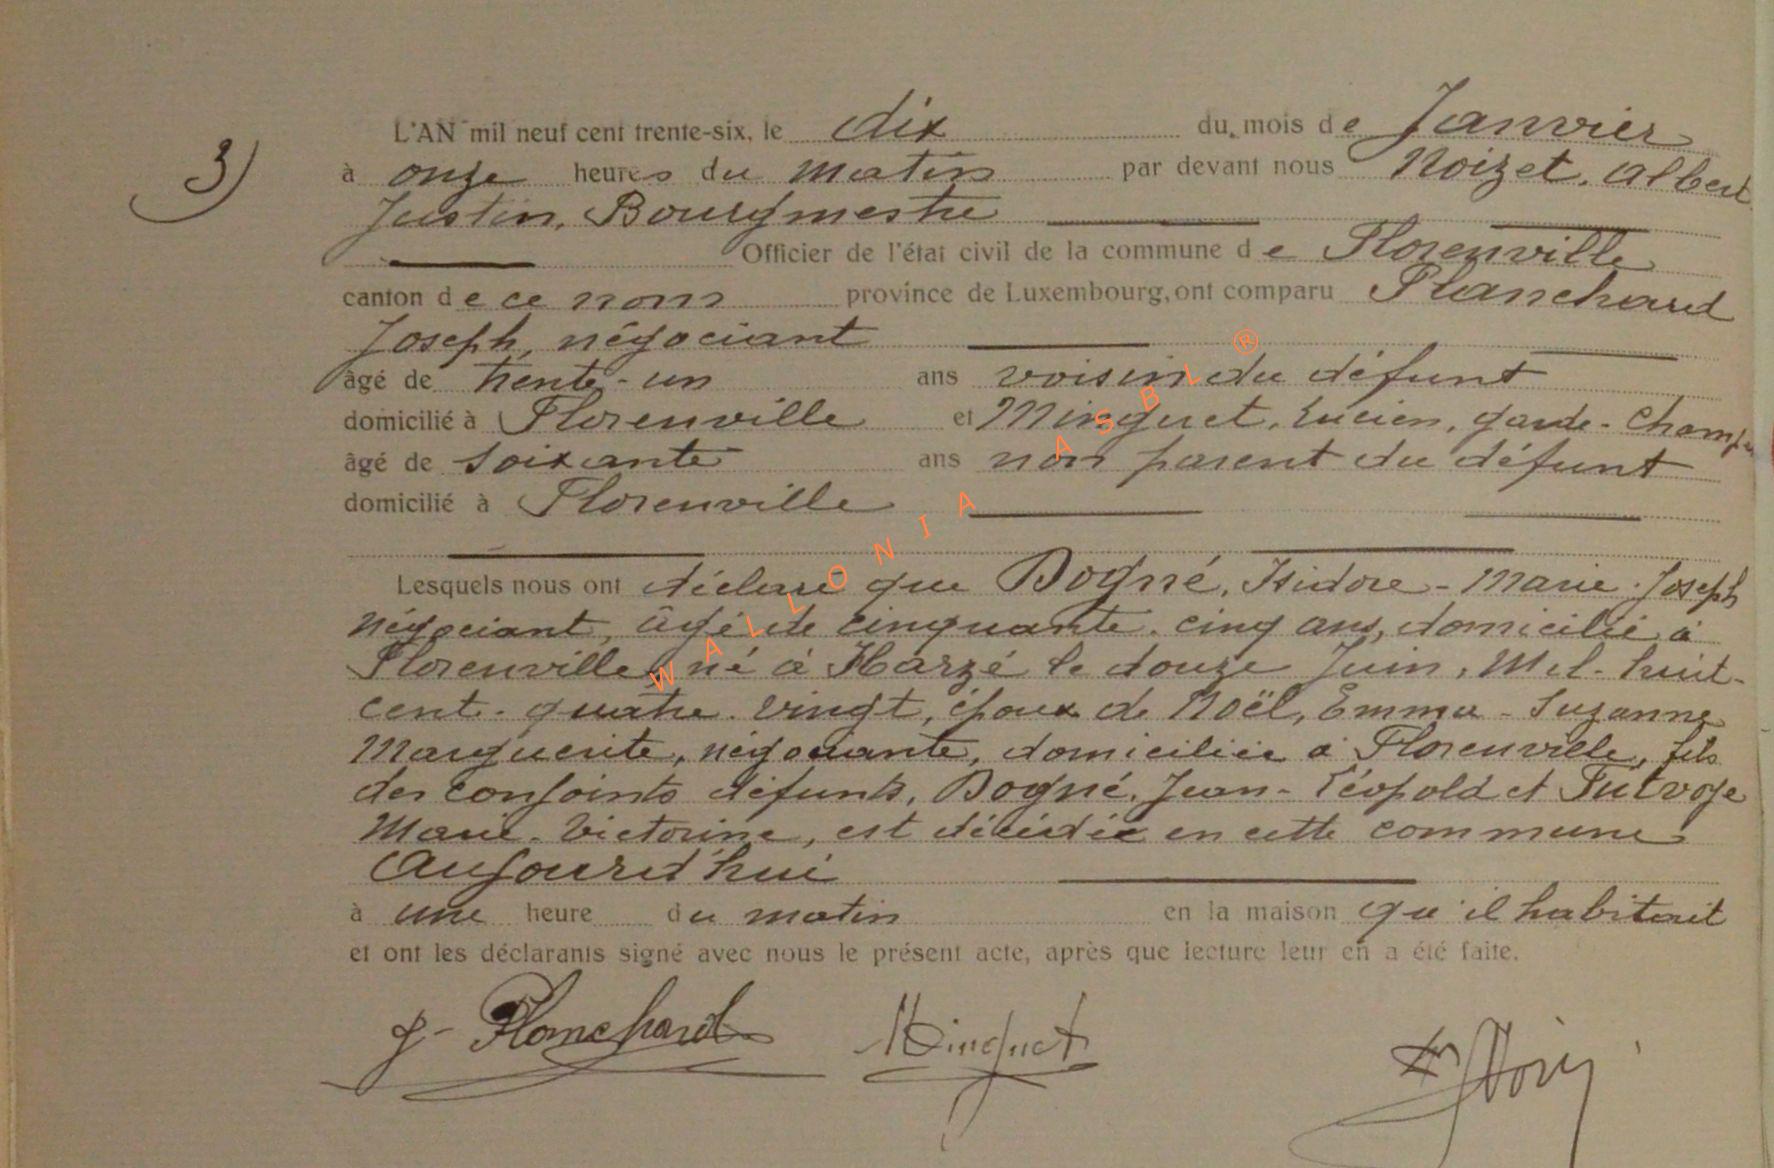 3)
L'AN mil neuf cent trente-six, le dix du mois de Janvier
à onze heures du matin par devant nous Noizet, Albert
Justin, Bourgmestre
Officier de l'état civil de la commune de Florenville
canton de ce nom province de Luxembourg, ont comparu Planchard
Joseph, négociant
âgé de trente-un ans voisin du défunt
domicilié à Florenville et Minguet, Lucien, garde-champ
âgé de soixante ans non parent du défunt
domicilié à Florenville
Lesquels nous ont déclaré que Dogné, Isidore-Marie-Joseph
négociant, âgé de cinquante-cinq ans, domicilié à
Florenville, né à Harzé le douze Juin, Mil-huit-
cent-quatre-vingt, époux de Noël, Emma-Suzanne
Marguerite, négociante, domiciliée à Florenville, fils
des conjoints défunts, Dogné, Jean-Léopold et Fulvoye
Marie-Victorine, est décédé en cette commune
Aujourd'hui
à une heure du matin en la maison qu'il habitait
et ont les déclarants signé avec nous le présent acte, après que lecture leur en a été faite.
J-Planchard Minguet
WALLONIA ASBL ®